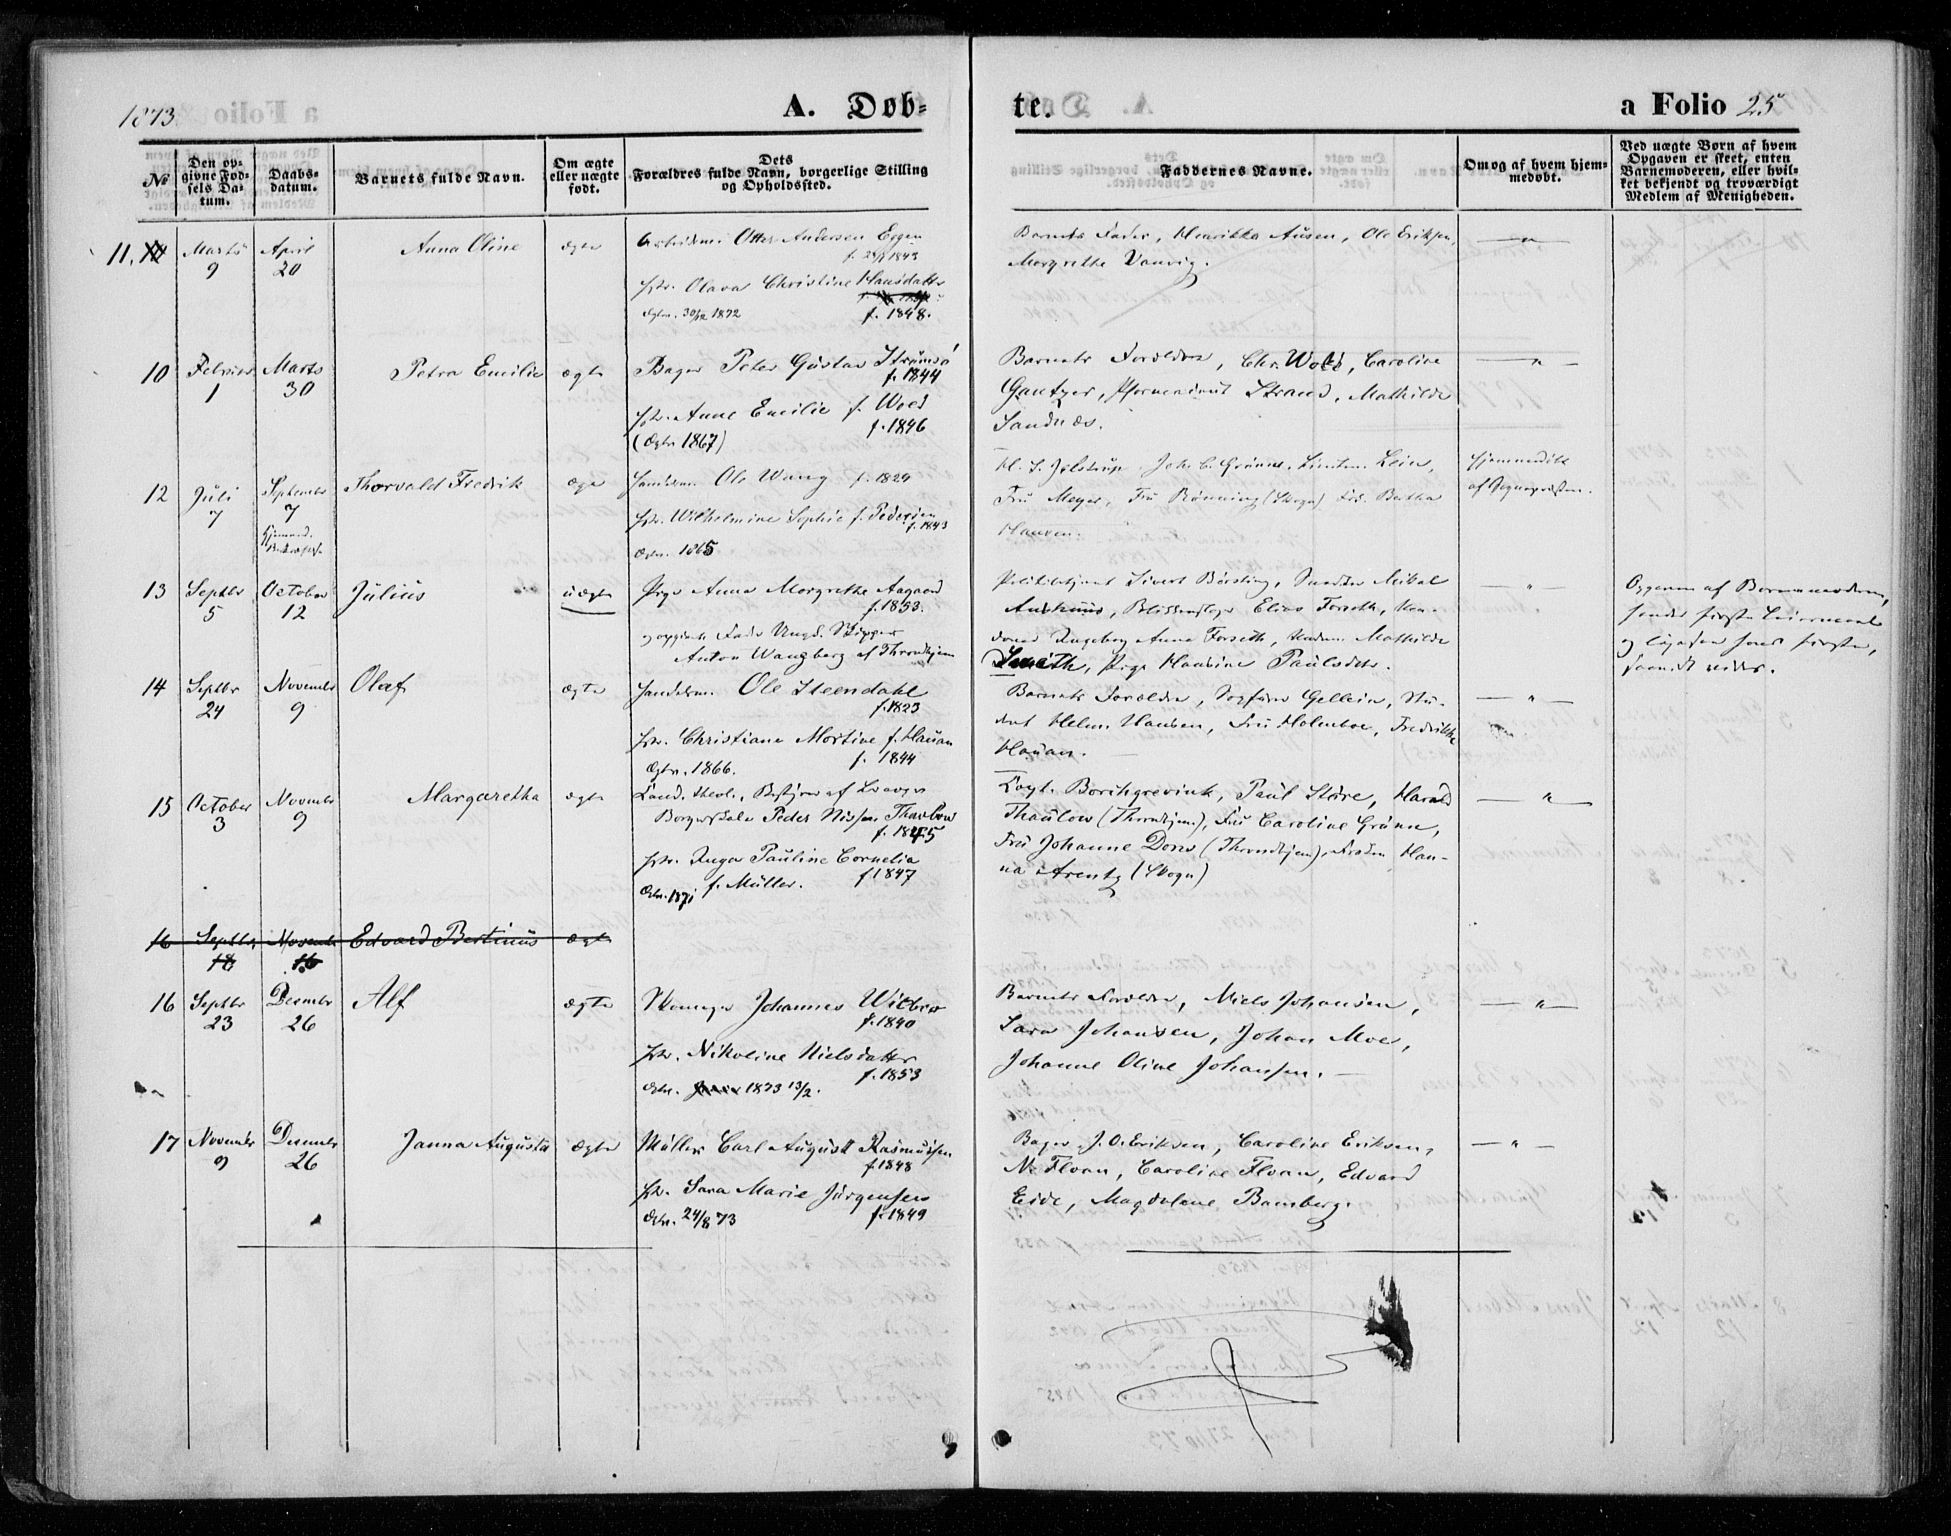 1873
A. Døb-
te.
a Folio 25
No
Den op-
givne Fød-
sels Da-
tum.
Daabs-
datum.
Barnets fulde Navn.
Om ægte
eller uægte
født.
Dets
Forældres fulde Navn, borgerlige Stilling
og Opholdssted.
Faddernes Navne.
Om og af hvem hjem-
medøbt.
Ved uægte Børn af hvem
Opgaven er skeet, enten
Barnemoderen, eller hvil-
ket bekjendt og troværdigt
Medlem af Menigheden.
11.
Marts
9
April
20
Anna Oline
ægte
Otter Andersen Eggen
1843
Hstr. Olava Christine Hansdatter
Ægtev. 30/12 1872
f. 1848.
Barnets Fader, Henrikka Ausen, Ole Eriksen,
Morgrethe Vanvig.
10
Februar
1
Marts
30
Petra Emilie
ægte
Bager Peter Gustav Strømsø
f. 1844
Hstr. Anne Emilie f. Woed
f. 1846
(Ægtev 1867)
Barnets Forældre, Chr. Caroline
Gantzer, Strand, Mathilde
Sandnæs.
12
Juli
7
September
7
Thorvald Fredrik
ægte
Handelsm. Ole Wang f. 1829
Hstr. Wilhelmine Sophie f. Pedersen
f. 1843
Ægtev. 1865
Joh. C. Grønn, Lieutn. Lein,
Fru Meyer, Fru Rønning (Skogn) Bertha
Hansen.
Hjemmedøbt
af Sognepræsten.
13
Septbr
5
October
12
Julius
uægte
Pige Anna Morgrethe Aagaard
f. 1853.
og opgivet Fader Ungk. Skipper
Anton Wangberg af Throndhjem
Politibetjent Sivert Børsting, Snedker Mikal
Blikkenslager Elias Forseth, Ma-
dame Ingeborg Anna Forseth, Madam Mathilde
Smith, Pige Hansine Paulsdtr.
Opgaven af Barnemoderen,
hendes første Leiermaal
og ligesaa hans første,
saavidt vides.
14
Septbr
24
November
9
Olaf
ægte
Handelsm. Ole Steendahl
f. 1823
Hstr. Christiane Mortine f. Hauan
f. 1844
Ægtev. 1866.
Barnets Forældre, Sagfører Gellein, Stu-
dent Helm. Hansen, Fru Holmboe, Fredrikke
Hauan.
15
October
3
November
9
Margaretha
ægte
Cand. theol., Bestyrer af Levanger
Borgerskole Peder Nissen Thaulow
f. 1845
Hstr. Inga Pauline Cornelia
f. Müller. f 1847
Ægtev. 1871
Fogt. Borchgrevink, Paul Støre, Harald
Thaulow (Throndhjem), Fru Caroline Grønn,
Fru Johanne Dons (Throndhjem), Frøken Han-
na Arentz (Skogn)
16 Septbr Novembr Edvard Bertinus ægte
18 16
16
Septbr
23
Decmbr
26
Alf
ægte
Skomager Johannes
f. 1840
Hstr. Nikoline Nielsdatter
f. 1853
Ægtev. 1873 13/2.
Barnets Forældre, Niels Johansen,
Sara Johansen, Johan Moe,
Johanne Oline Johansen.
17
November
9
Decmbr
26
Janna Augusta
ægte
Møller Carl August Rasmussen
f. 1848
Hstr. Sara Marie Jørgensen
Ægtev. 24/8 73 f. 1849
Bager J. O. Eriksen, Caroline Eriksen,
N. Floan, Caroline Floan, Edvard
Eide, Magdalene Bamberg.